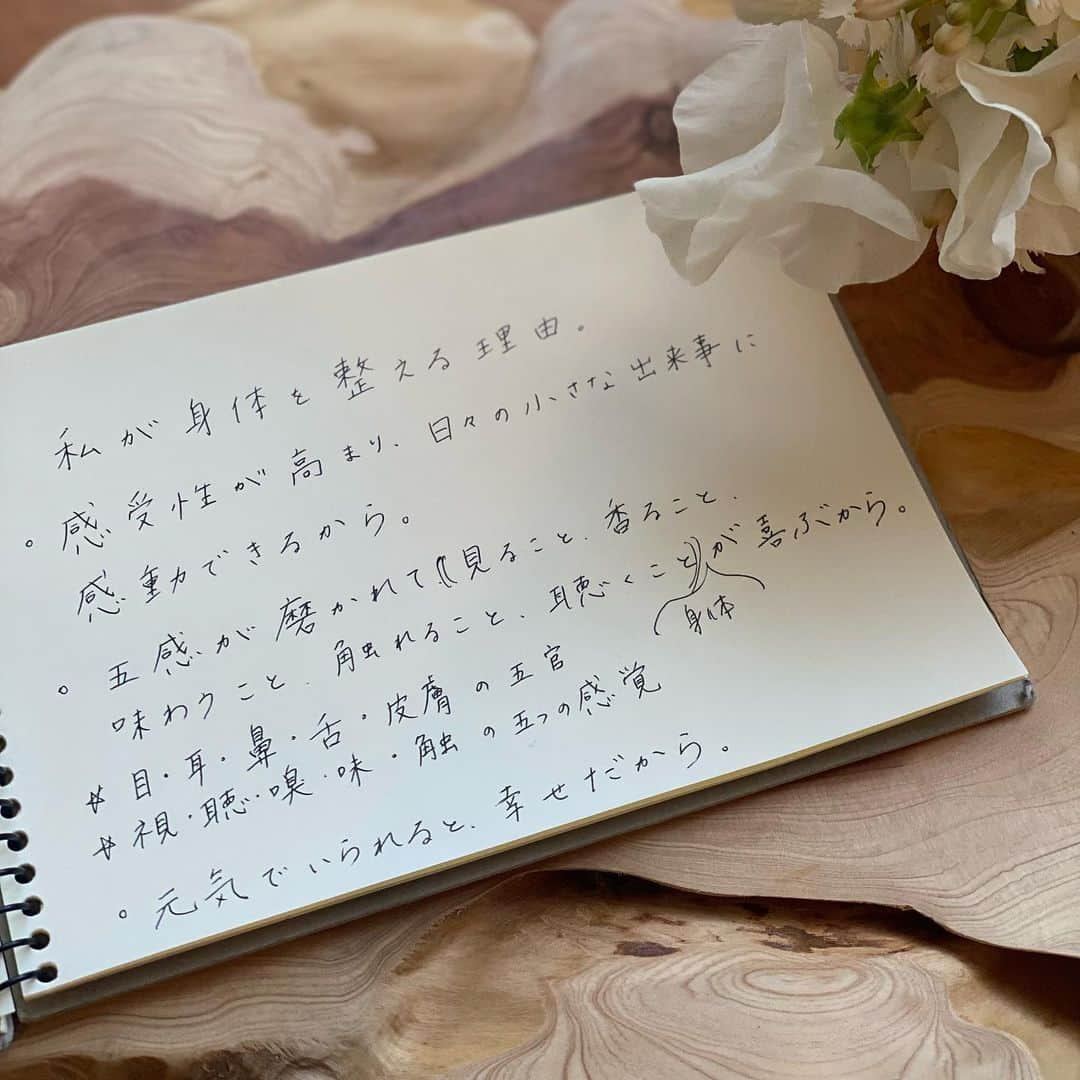 私が身体を整える理由。
。感受性が高まり、日々の小さな出来事に
感動できるから。
。五感が磨かれて《見ること、香ること、
味わうこと、触れること、聴くこと》が喜ぶから。
身体
*目・耳・鼻・舌・皮膚の五官
*視・聴・嗅・味・触の五つの感覚
。元気でいられると、幸せだから。